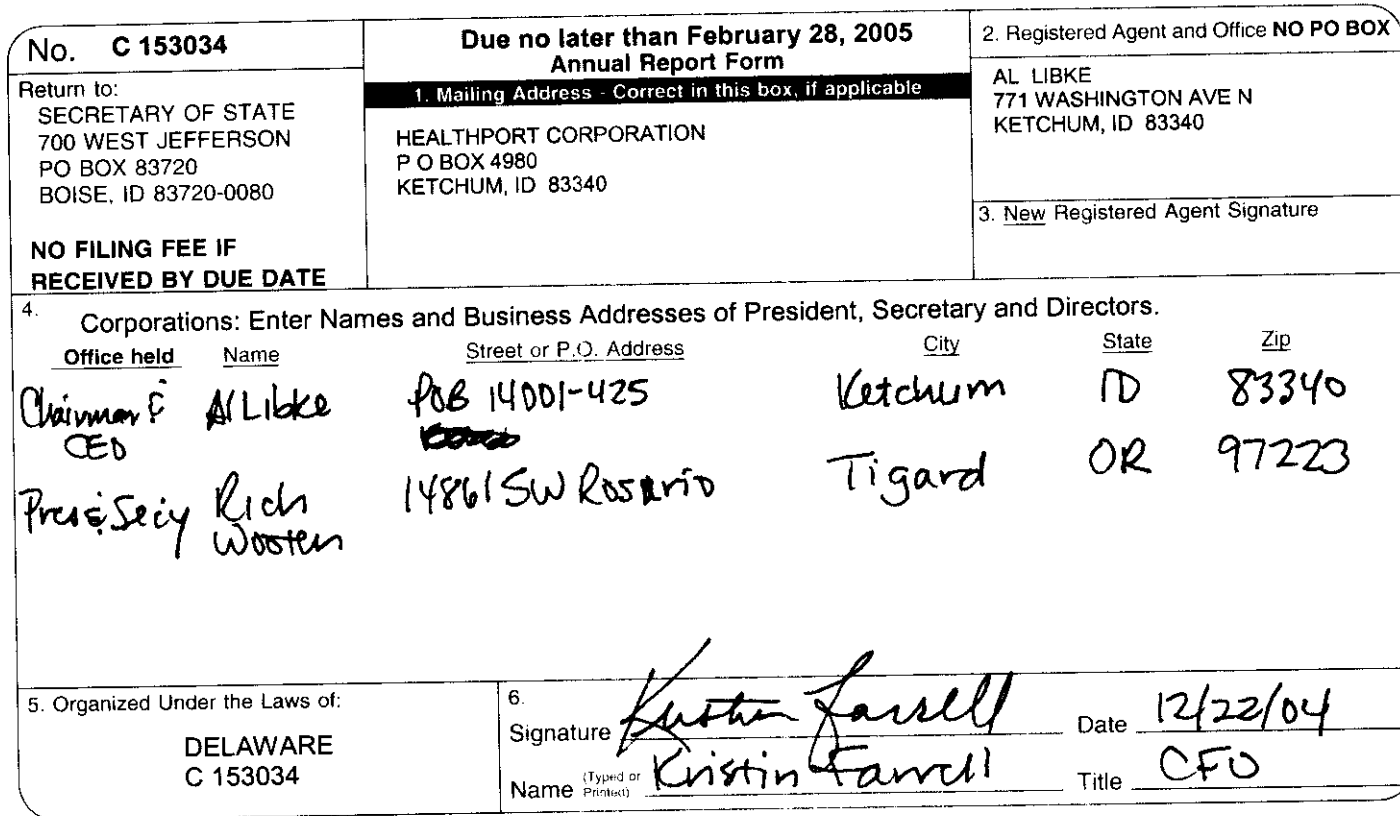 No. C 153034
Return to:
SECRETARY OF STATE
700 WEST JEFFERSON
PO BOX 83720
BOISE, ID 83720-0080
NO FILING FEE IF
RECEIVED BY DUE DATE
Due no later than February 28, 2005
Annual Report Form
1. Mailing Address - Correct in this box, if applicable
HEALTHPORT CORPORATION
P O BOX 4980
KETCHUM, ID 83340
2. Registered Agent and Office NO PO BOX
AL LIBKE
771 WASHINGTON AVE N
KETCHUM, ID 83340
3. New Registered Agent Signature
4. Corporations: Enter Names and Business Addresses of President, Secretary and Directors.
Office held Name Street or P.O. Address City State Zip
Chairman & Al Libke POB 14001-425 Ketchum ID 83340
CEO
Pres & Secy Rich 14861 SW Rosario Tigard OR 97223
Wooten
5. Organized Under the Laws of:
DELAWARE
C 153034
6.
Signature Kristin Farrell Date 12/22/04
Name (Typed or Printed) Kristin Farrell Title CFO